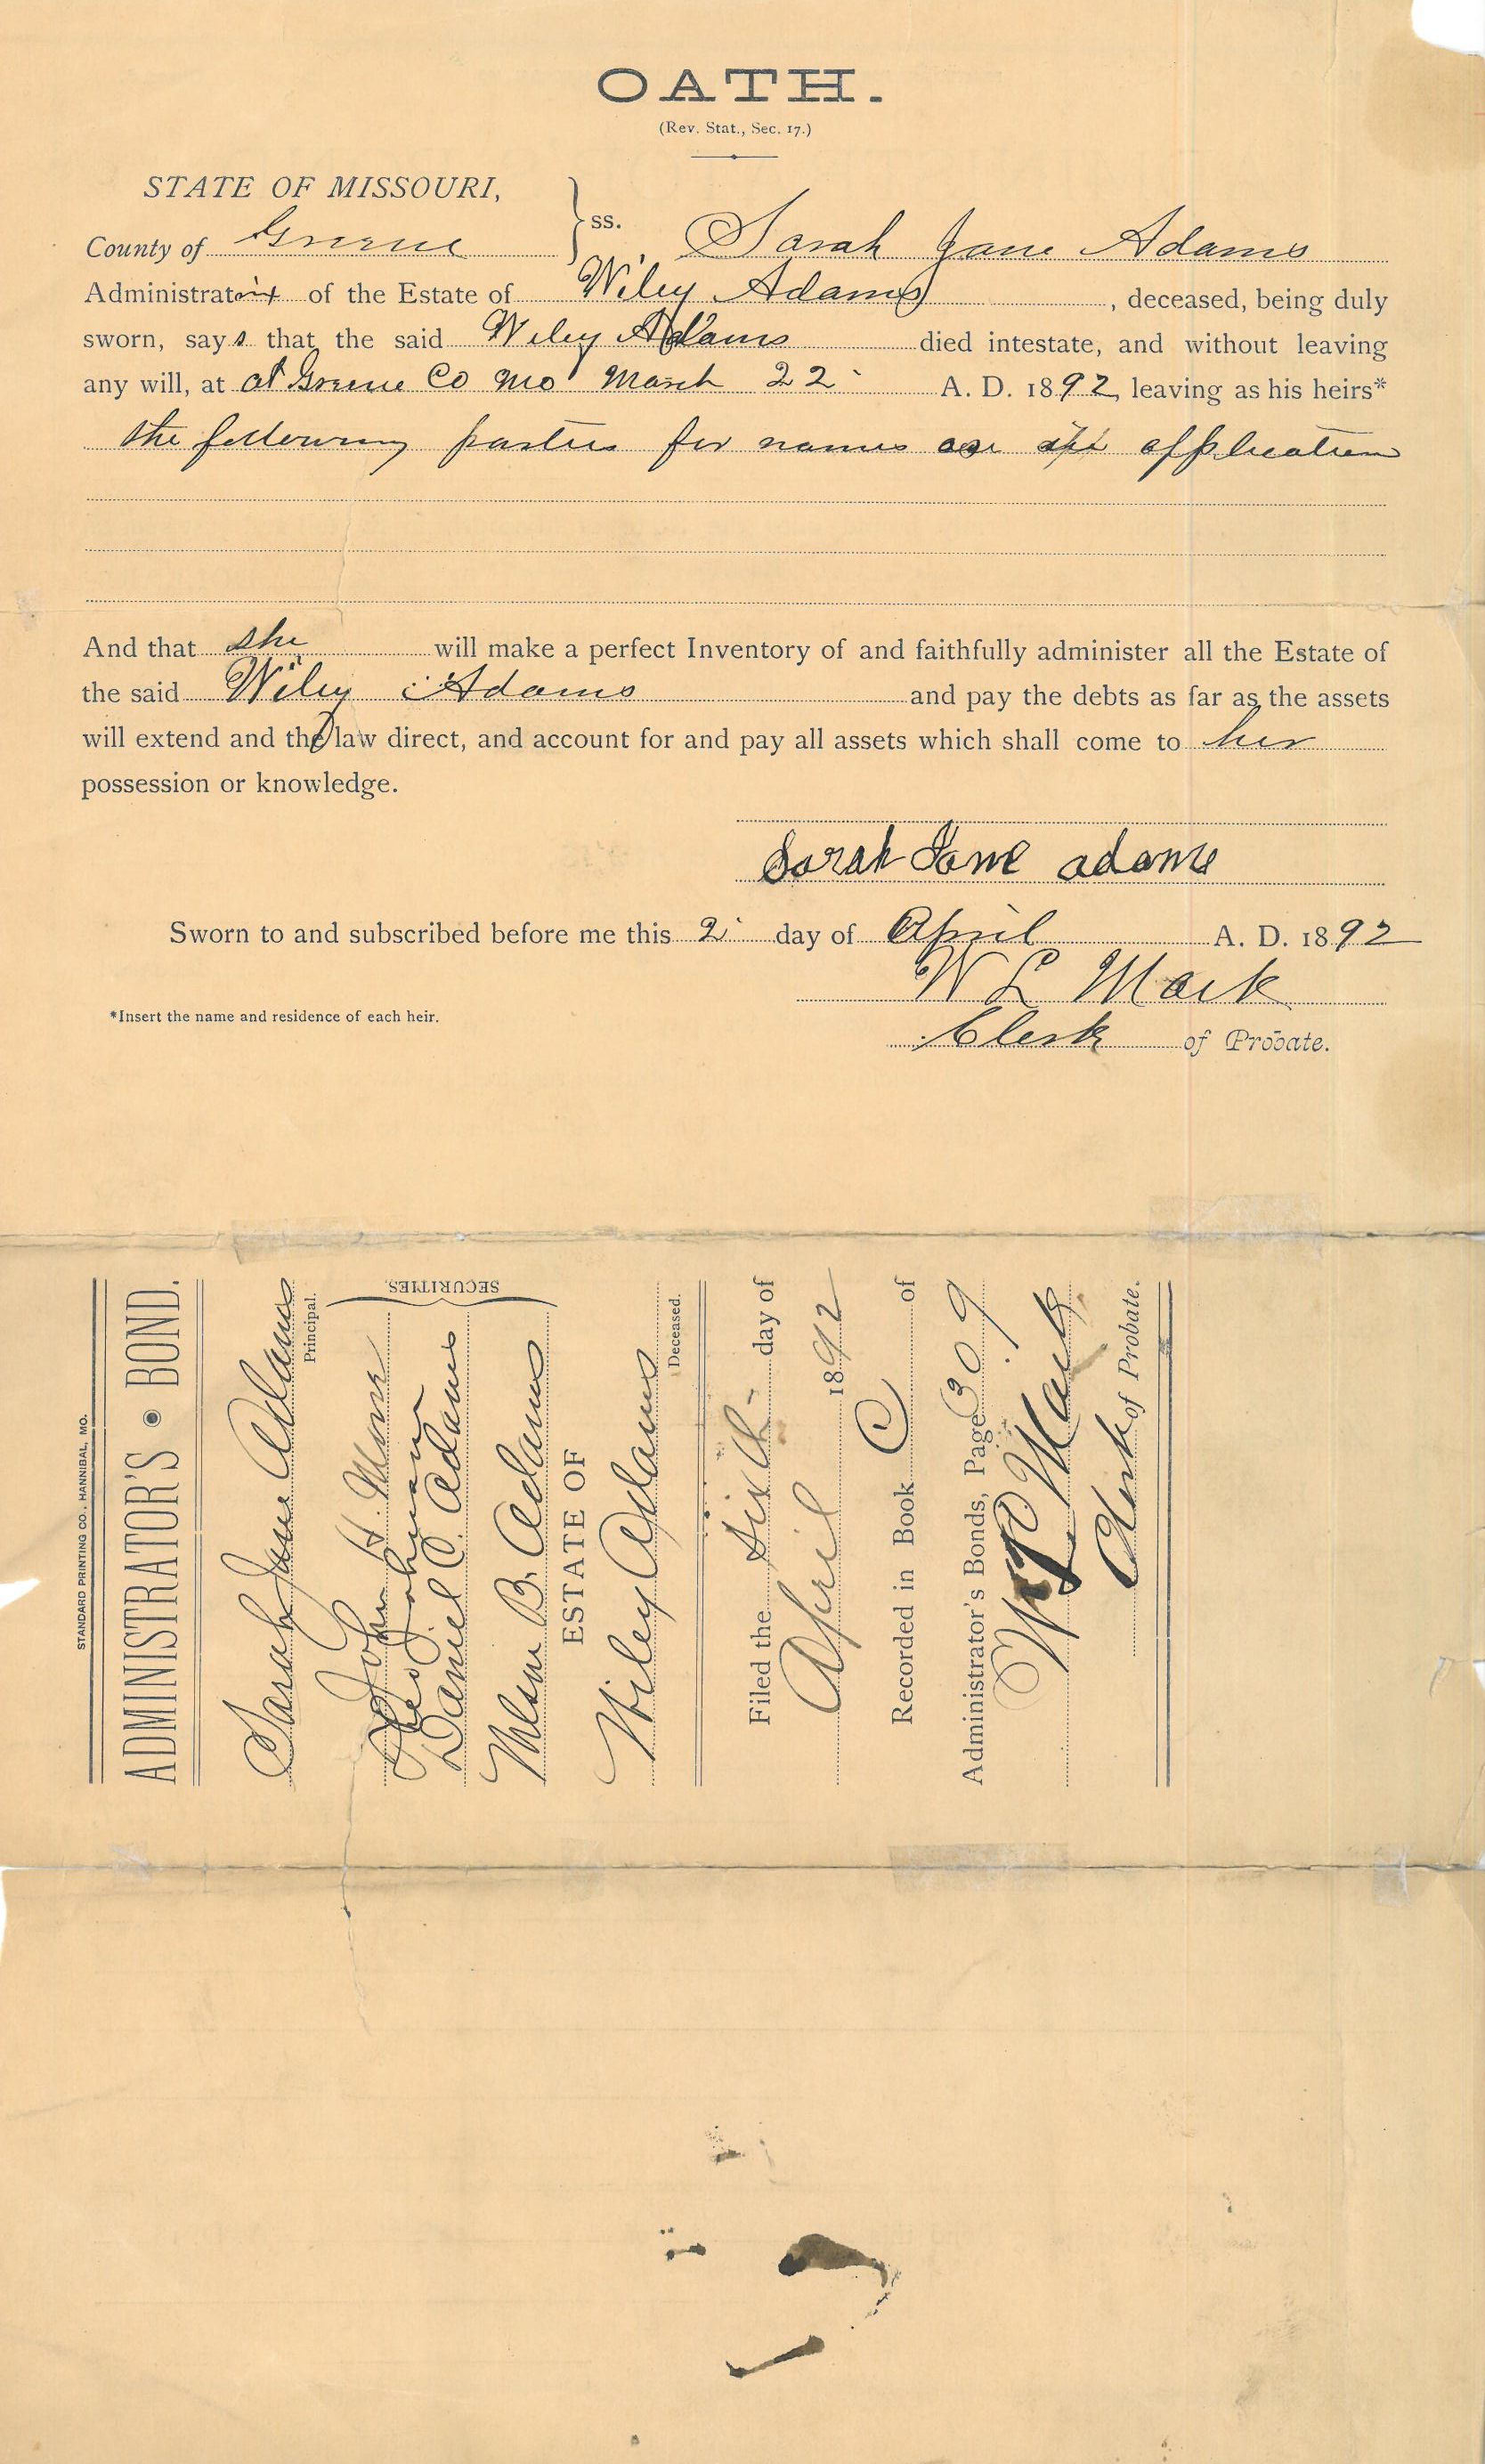 OATH.
(Rev. Stat., Sec. 17.)
STATE OF MISSOURI,
County of Greene } ss. Sarah Jane Adams
Administratrix of the Estate of Wiley Adams, deceased, being duly
sworn, says that the said Wiley Adams died intestate, and without leaving
any will, at at Greene Co Mo March 22 A. D. 1892, leaving as his heirs*
the following parties for names application
And that she will make a perfect Inventory of and faithfully administer all the Estate of
the said Wiley Adams and pay the debts as far as the assets
will extend and the law direct, and account for and pay all assets which shall come to her
possession or knowledge.
Sarah Jane adams
Sworn to and subscribed before me this 2 day of April A. D. 1892
W L Mack
*Insert the name and residence of each heir.
Clerk of Probate.
STANDARD PRINTING CO., HANNIBAL, MO.
ADMINISTRATOR'S • BOND.
Sarah Jane Adams
Principal.
John H.
Johnson
Daniel C. Adams
B. Adams
SECURITIES.
ESTATE OF
Wiley Adams
Deceased.
Filed the Sixth day of
April 1892
Recorded in Book C of
Administrator's Bonds, Page 309
W L Mack
Clerk of Probate.